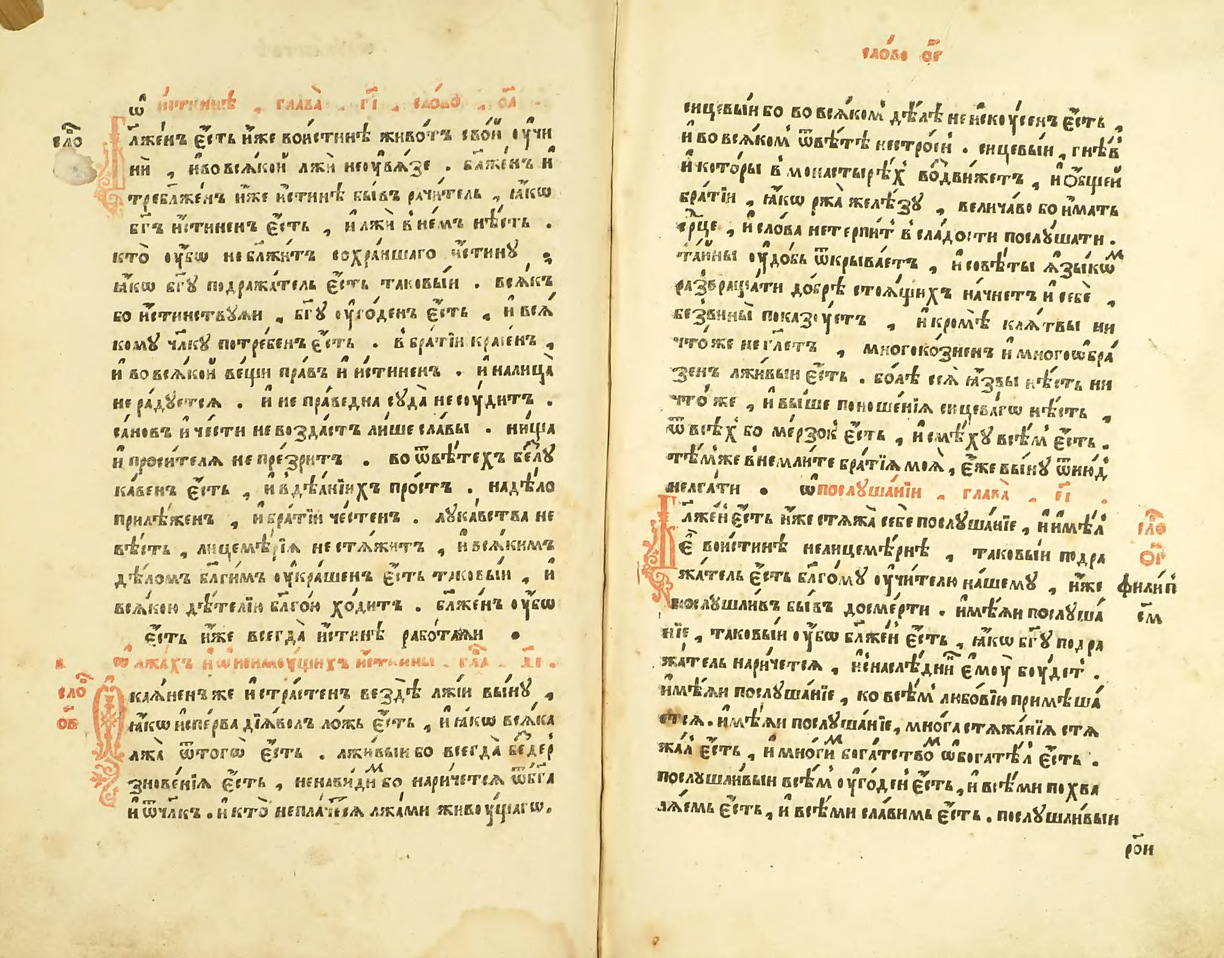 ѡ҆ и҆́стиннѣ , глава̀ . г҃і . сло́во . о҃а .
сло
Бл҃же́нъ є҆́сть и҆́же вои́стинѣ живо́тъ сво́й ᲂу҆чи
нѝ , и҆ во всѧ́кой лжѝ не ᲂу҆вѧ́зе . бл҃же́нъ и҆
требл҃же́нъ и҆́же и҆́стинѣ бы́въ рачи́тель , ꙗ҆́кѡ
бг҃ъ и҆́стиненъ є҆́сть , и҆ лжѝ в не́мъ нѣ́сть .
кто̀ ᲂу҆́бѡ не бл҃жи́тъ сохра́ншаго и҆́стинꙋ ,
ꙗ҆́кѡ бг҃ꙋ подража́тель є҆́сть таковы́и . всѧ́къ
бо и҆́стинствꙋѧи , бг҃ꙋ ᲂу҆го́денъ є҆́сть , и҆ всѧ́
комꙋ чл҃кꙋ потре́бенъ є҆́сть . в бра́тїи кра́сенъ ,
и҆ во всѧ́кой ве́щи пра́въ и҆ и҆́стиненъ . и҆ на лица̀
не ра́дꙋетсѧ . и҆ не пра́ведна сꙋда̀ не сᲂу́дитъ .
са́новъ и҆ че́сти не возда́стъ ли́ше сла́вы . ни́ща
и҆ проси́телѧ не пре́зритъ . во ѿвѣ́техъ бе́лꙋ
ка́венъ є҆́сть , и҆ в дѣѧ́нїихъ про́стъ . на дѣ́ло
прилѣ́женъ , и҆ бра́тїи че́стенъ . лꙋка́вства не
вѣ́сть , лицемѣ́рїѧ не стѧ́житъ , и҆ всѧ́кимъ
дѣ́ломъ бл҃ги́мъ ᲂу҆кра́шенъ є҆́сть таковы́и , и҆
всѧ́кою дѣ́телїю бл҃го́ю хо́дитъ . бл҃же́нъ ᲂу҆́бѡ
є҆́сть и҆́же всегда̀ и҆́стинѣ рабо́таѧи .
ѡ҆ лжа́хъ и҆ ѡ҆ неимꙋ́щихъ и҆́стины . гла̀ . д҃і .
сло
о҃в
Ѻ҆каѧ́ненъ же и҆ стра́стенъ вездѣ̀ лжі́и вы́нꙋ ,
ꙗ҆́кѡ и҆спе́рва дїѧ́волъ ло́жь є҆́сть , и҆ ꙗ҆́кѡ всѧ́ка
лжа̀ ѿ тогѡ̀ є҆́сть . лжи́выи бо всегда̀ без̾ де́р
знове́нїѧ є҆́сть , ненави́димъ бо нарича́етсѧ ѿ бг҃а
и҆ ѿ чл҃къ . и҆ кто̀ не пла́четсѧ лжа́ми живꙋ́щагѡ .
сло́во о҃г
сицевы́и бо во всѧ́комъ дѣ́лѣ не и҆скꙋ́сенъ є҆́сть ,
и҆ во всѧ́комъ ѿвѣ́тѣ нестро́ен . сицевы́и , гнѣ́в
и҆ кото́ры в монастырѣ́х во́движетъ , и҆ ѻ҆́бщей
бра́тїи , ꙗ҆́кѡ ржа̀ желѣ́зꙋ , велича́во бо и҆́мать
ср҃це , и҆ сло́ва не терпи́т в сла́дости послꙋ́шати .
та́йны ᲂу҆до́бь ѿкрыва́етъ , и҆ совѣ́ты ꙗ҆зы́комъ
развраща́ти до́брѣ стоѧ́щихъ начне́тъ и҆ себѐ ,
безвины̀ показꙋ́етъ , и҆ кро́мѣ клѧ́твы ни
что́же не гл҃етъ , многоко́зненъ и҆ многоѡбра́
зенъ лжи́выи є҆́сть . бо́лѣ сеѧ̀ ꙗ҆́звы нѣ́сть ни
что́же , и҆ вы́ше поноше́нїѧ сицева́гѡ нѣ́сть ,
ѿ всѣ́х бо ме́рзок є҆́сть , и҆ смѣ́хꙋ всѣ́м є҆́сть .
тѣ́мже внемли́те бра́тїѧ моѧ̀ , є҆́же вы́нꙋ ѿинд
не лга́ти . ѡ҆ послꙋша́нїи . глава̀ . є҃і .
сло
о҃г
Бл҃же́н є҆́сть и҆́же стѧжа̀ себѐ послꙋша́нїе , и҆ и҆мѣ́л
є҆̀ вои́стинѣ нелицемѣ́рнѣ , таковы́и подра
жа́тель є҆́сть бл҃го́мꙋ ᲂу҆чи́телю на́шемꙋ , и҆́же
филип
см
послꙋ́шливъ бы́въ до сме́рти . и҆мѣ́ѧи послꙋша́
нїе , таковы́и ᲂу҆́бѡ бл҃же́н є҆́сть , ꙗ҆́кѡ бг҃ꙋ подра
жа́тель нарича́етсѧ , и҆ наслѣ́дник є҆мᲂу̀ бᲂу́дет .
и҆мѣ́ѧи послꙋша́нїе , ко всѣ́м любо́вїи примѣша́
етсѧ . и҆мѣ́ѧи послꙋша́нїе , мно́га стѧжа́нїѧ стѧ
жа́л є҆́сть , и҆ мно́гим бога́тством ѡ҆богатѣ́л є҆́сть .
послꙋшли́выи всѣ́м ᲂу҆го́ден є҆́сть , и҆ всѣ́ми похва
лѧ́емь є҆́сть , и҆ всѣ́ми сла́вимь є҆́сть . послꙋшли́выи